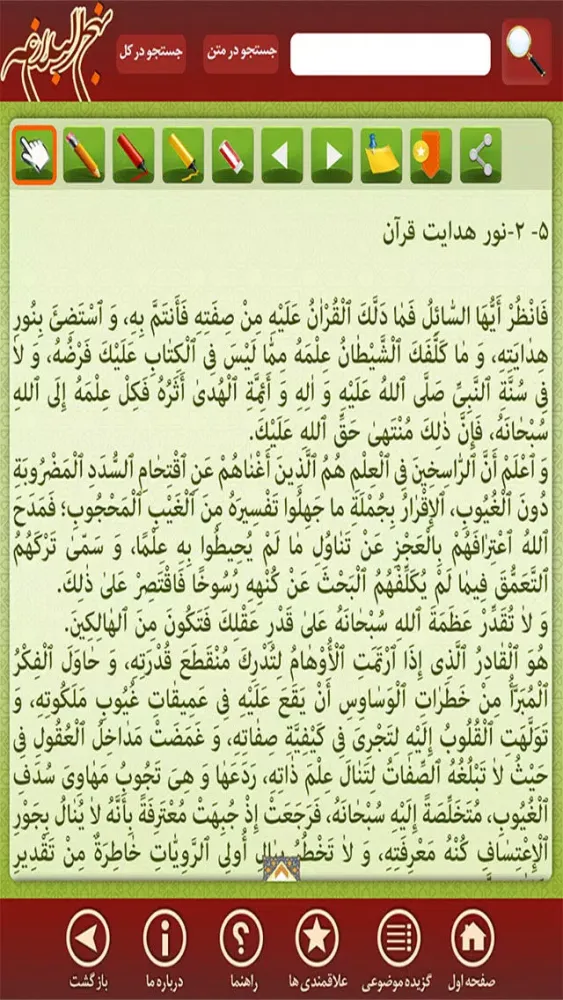 نهج البلاغه
جستجو در کل
جستجو در متن
۵- ۲-نور هدایت قرآن
فَانْظُرْ أَيُّهَا السَّائِلُ فَمَا دَلَّكَ الْقُرْاٰنُ عَلَيْهِ مِنْ صِفَتِهِ فَأْتَمَّ بِهِ، وَ اسْتَضِئْ بِنُورِ
هِدَايَتِهِ، وَ مَا كَلَّفَكَ الشَّيْطَانُ عِلْمَهُ مِمَّا لَيْسَ فِى الْكِتَابِ عَلَيْكَ فَرْضُهُ، وَ لاَ
فِى سُنَّةِ النَّبِىِّ صَلَّى اللهُ عَلَيْهِ وَ اٰلِهِ وَ أَئِمَّةِ الْهُدىٰ أَثَرُهُ فَكِلْ عِلْمَهُ إِلَى اللهِ
سُبْحَانَهُ، فَإِنَّ ذٰلِكَ مُنْتَهىٰ حَقِّ اللهِ عَلَيْكَ.
وَ اعْلَمْ أَنَّ الرَّاسِخِينَ فِى الْعِلْمِ هُمُ الَّذِينَ أَغْنَاهُمْ عَنِ اقْتِحَامِ السُّدَدِ الْمَضْرُوبَةِ
دُونَ الْغُيُوبِ، الْإِقْرَارُ بِجُمْلَةِ مَا جَهِلُوا تَفْسِيرَهُ مِنَ الْغَيْبِ الْمَحْجُوبِ؛ فَمَدَحَ
اللهُ اعْتِرَافَهُمْ بِالْعَجْزِ عَنْ تَنَاوُلِ مَا لَمْ يُحِيطُوا بِهِ عِلْمًا، وَ سَمّىٰ تَرْكَهُمُ
التَّعَمُّقَ فِيمَا لَمْ يُكَلِّفْهُمُ الْبَحْثَ عَنْ كُنْهِهِ رُسُوخًا فَاقْتَصِرْ عَلىٰ ذٰلِكَ.
وَ لاَ تُقَدِّرْ عَظَمَةَ اللهِ سُبْحَانَهُ عَلىٰ قَدْرِ عَقْلِكَ فَتَكُونَ مِنَ الْهَالِكِينَ.
هُوَ الْقَادِرُ الَّذِى إِذَا ارْتَمَتِ الْأَوْهَامُ لِتُدْرِكَ مُنْقَطَعَ قُدْرَتِهِ، وَ حَاوَلَ الْفِكْرُ
الْمُبَرَّأُ مِنْ خَطَرَاتِ الْوَسَاوِسِ أَنْ يَقَعَ عَلَيْهِ فِى عَمِيقَاتِ غُيُوبِ مَلَكُوتِهِ، وَ
تَوَلَّهَتِ الْقُلُوبُ إِلَيْهِ لِتَجْرِىَ فِى كَيْفِيَّةِ صِفَاتِهِ، وَ غَمَضَتْ مَدَاخِلُ الْعُقُولِ فِى
حَيْثُ لاَ تَبْلُغُهُ الصِّفَاتُ لِتَنَالَ عِلْمَ ذَاتِهِ، رَدَعَهَا وَ هِىَ تَجُوبُ مَهَاوِىَ سُدَفِ
الْغُيُوبِ، مُتَخَلِّصَةً إِلَيْهِ سُبْحَانَهُ، فَرَجَعَتْ إِذْ جُبِهَتْ مُعْتَرِفَةً بِأَنَّهُ لاَ يُنَالُ بِجَوْرِ
الْإِعْتِسَافِ كُنْهُ مَعْرِفَتِهِ، وَ لاَ تَخْطُرُ بِبَالِ أُولِى الرَّوِيَّاتِ خَاطِرَةٌ مِنْ تَقْدِيرِ
صفحه اول
گزیده موضوعی
علاقمندی ها
راهنما
درباره ما
بازگشت